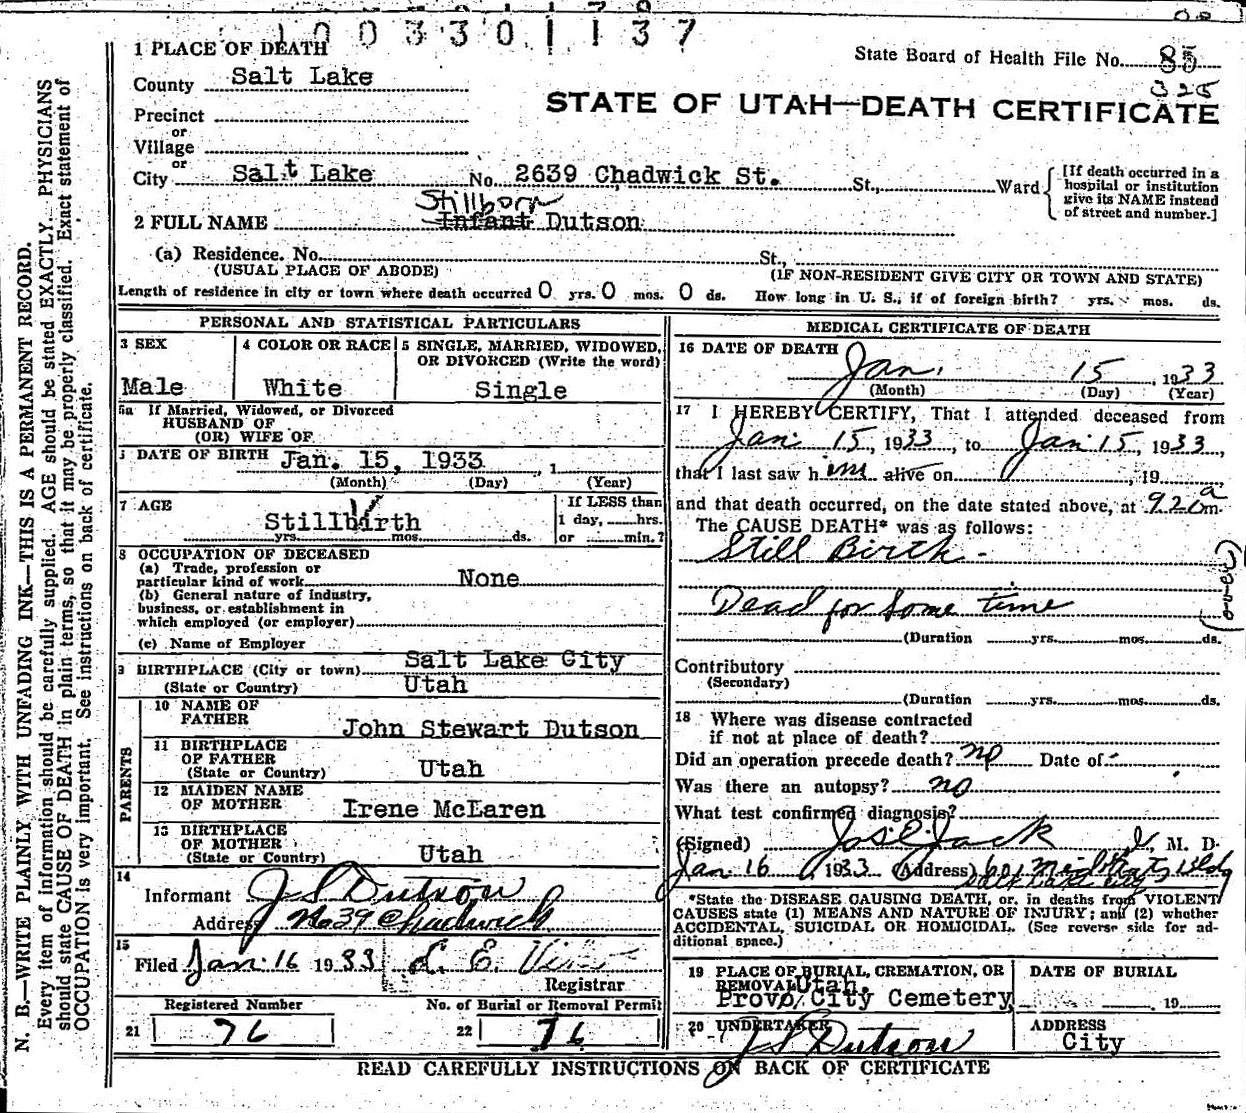 1003301137
1 PLACE OF DEATH
State Board of Health File No. 85
325
County Salt Lake
STATE OF UTAH—DEATH CERTIFICATE
Precinct
or
Village
or
City Salt Lake No. 2639 Chadwick St. St., Ward
[If death occurred in a hospital or institution give its NAME instead of street and number.]
Stillborn
2 FULL NAME Infant Dutson
(a) Residence. No. St.,
(USUAL PLACE OF ABODE) (IF NON-RESIDENT GIVE CITY OR TOWN AND STATE)
Length of residence in city or town where death occurred 0 yrs. 0 mos. 0 ds. How long in U. S., if of foreign birth? yrs. mos. ds.
PERSONAL AND STATISTICAL PARTICULARS
3 SEX
Male
4 COLOR OR RACE
White
5 SINGLE, MARRIED, WIDOWED,
OR DIVORCED (Write the word)
Single
5a If Married, Widowed, or Divorced
HUSBAND OF
(OR) WIFE OF
DATE OF BIRTH Jan. 15, 1933 , 1
(Month) (Day) (Year)
7 AGE
Stillbirth
yrs. mos. ds.
If LESS than
1 day, hrs.
or min.?
8 OCCUPATION OF DECEASED
(a) Trade, profession or
particular kind of work None
(b) General nature of industry,
business, or establishment in
which employed (or employer)
(c) Name of Employer
9 BIRTHPLACE (City or town) Salt Lake City
(State or Country) Utah
PARENTS
10 NAME OF
FATHER John Stewart Dutson
11 BIRTHPLACE
OF FATHER
(State or Country) Utah
12 MAIDEN NAME
OF MOTHER Irene McLaren
13 BIRTHPLACE
OF MOTHER
(State or Country) Utah
14
Informant J S Dutson
Address 2639 Chadwick
15
Filed Jan. 16 1933 L. E.
Registrar
Registered Number
21 76
No. of Burial or Removal Permit
22 76
MEDICAL CERTIFICATE OF DEATH
16 DATE OF DEATH
Jan. 15, 1933
(Month) (Day) (Year)
17 I HEREBY CERTIFY, That I attended deceased from
Jan. 15, 1933, to Jan 15, 1933,
that I last saw him alive on , 19
and that death occurred, on the date stated above, at 920 a m.
The CAUSE DEATH* was as follows:
Still Birth -
Dead for some time
(over)
(Duration yrs. mos. ds.
Contributory
(Secondary)
(Duration yrs. mos. ds.
18 Where was disease contracted
if not at place of death?
Did an operation precede death? no Date of -
Was there an autopsy? no
What test confirmed diagnosis?
(Signed) Jos E Jack, M. D.
Jan 16, 1933 (Address) 601 Bldg
Salt Lake City
*State the DISEASE CAUSING DEATH, or, in deaths from VIOLENT
CAUSES state (1) MEANS AND NATURE OF INJURY; and (2) whether
ACCIDENTAL, SUICIDAL OR HOMICIDAL. (See reverse side for ad-
ditional space.)
19 PLACE OF BURIAL, CREMATION, OR
REMOVAL Utah.
Provo City Cemetery
DATE OF BURIAL
, 19
20 UNDERTAKER
J S Dutson
ADDRESS
City
READ CAREFULLY INSTRUCTIONS ON BACK OF CERTIFICATE
N. B.—WRITE PLAINLY WITH UNFADING INK—THIS IS A PERMANENT RECORD.
Every item of information should be carefully supplied. AGE should be stated EXACTLY. PHYSICIANS
should state CAUSE OF DEATH in plain terms, so that it may be properly classified. Exact statement of
OCCUPATION is very important. See instructions on back of certificate.